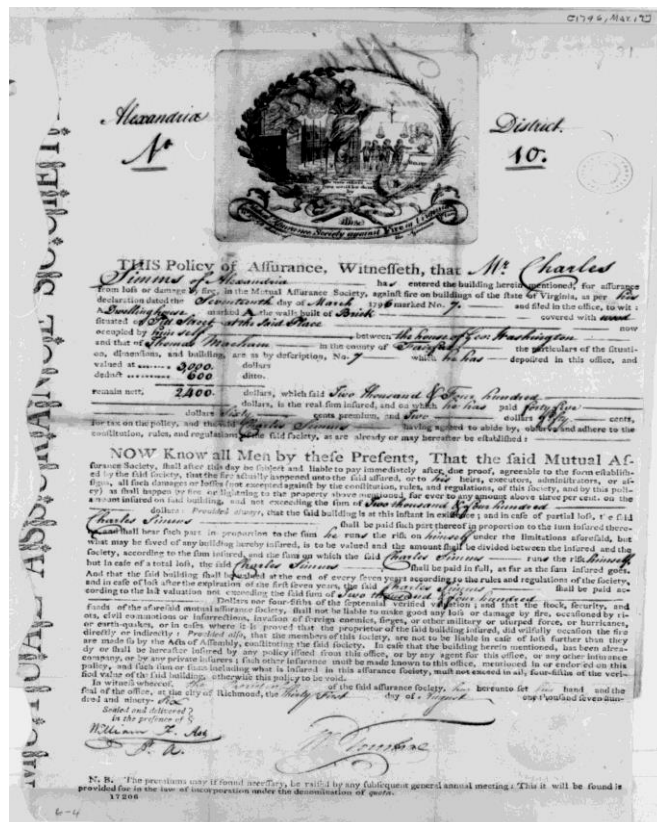 [1796, Mar. 17]
Alexandria
District.
No
10.
Mutual Assurance Society against Fire on Buildings
THIS Policy of Assurance, Witnesseth, that Mr. Charles
Simms of Alexandria has entered the building herein mentioned, for assurance
from loss or damage by fire, in the Mutual Assurance Society, against fire on buildings of the state of Virginia, as per his
declaration dated the Seventeenth day of March 1796 marked No. 7. and filed in the office, to wit:
a Dwelling house marked A the walls built of Brick covered with wood
situated on at the said Place now
occupied by himself between the house of Gen Washington
and that of Thomas in the county of Fairfax the particulars of the situati-
on, dimensions, and building, are as by description, No. 7 which he has deposited in this office, and
valued at 3,000. dollars
deduct 600 ditto.
remain nett, 2,400. dollars, which said Two thousand & Four hundred
dollars, is the real sum insured, and on which he has paid forty five
dollars Sixty cents premium, and Two dollars fifty cents,
for tax on the policy, and the said Charles Simms having agreed to abide by, observe and adhere to the
constitution, rules, and regulations of the said society, as are already or may hereafter be established:
NOW Know all Men by these Presents, That the said Mutual As-
surance Society, shall after this day be subject and liable to pay immediately after, due proof, agreeable to the form establish-
ed by the said society, that the fire actually happened unto the said assured, or to his heirs, executors, administrators, or as-
signs, all such damages or losses (not excepted against by the constitution, rules, and regulations, of this society, and by this poli-
cy) as shall happen by fire or lightning to the property above mentioned, for ever to any amount above three per cent. on the
amount insured on said building, and not exceeding the sum of Two thousand & four hundred
dollars: Provided always, that the said building is at this instant in existence; and in case of partial loss, the said
Charles Simms shall be paid such part thereof in proportion to the sum insured there-
and shall bear such part in proportion to the sum he runs the risk on himself under the limitations aforesaid, but
what may be saved of any building hereby insured, is to be valued and the amount shall be divided between the insured and the
society, according to the sum insured, and the sum on which the said Charles Simms runs the risk himself
but in case of a total loss, the said Charles Simms shall be paid in full, as far as the sum insured goes.
And that the said building shall be revalued at the end of every seven years according to the rules and regulations of the society,
and in case of loss after the expiration of the first seven years, the said Charles Simms shall be paid ac-
cording to the last valuation not exceeding the said sum of Two thousand & four hundred
Dollars nor four-fifths of the septennial verified valuation; and that the stock, security, and
funds of the aforesaid mutual assurance society, shall not be liable to make good any loss or damage by fire, occasioned by ri-
ots, civil commotions or insurrections, invasion of foreign enemies, sieges, or other military or usurped force, or hurricanes,
or earth-quakes, or in cases where it is proved that the proprietor of the said building insured, did wilfully occasion the fire
directly or indirectly: Provided also, that the members of this society, are not to be liable in case of loss further than they
are made so by the Acts of Assembly, constituting the said society. In case that the building herein mentioned, has been alrea-
dy or shall be hereafter insured by any policy issued from this office, or by any agent for this office, or any other insurance
company, or by any private insurers; such other insurance must be made known to this office, mentioned in or endorsed on this
policy, and such sum or sums including what is insured in this assurance society, must not exceed in all, four-fifths of the veri-
fied value of the said building, otherwise this policy to be void.
In witness whereof, the of the said assurance society, has hereunto set his hand and the
seal of the office, at the city of Richmond, the thirty First day of August one thousand seven hun-
dred and ninety-six
Sealed and delivered
in the presence of
William F. Ast
P. A.
N. B. The premiums may if found necessary, be raised by any subsequent general annual meeting: This it will be found is
provided for in the law of incorporation under the denomination of quota.
17206
6-4
MUTUAL ASSURANCE SOCIETY